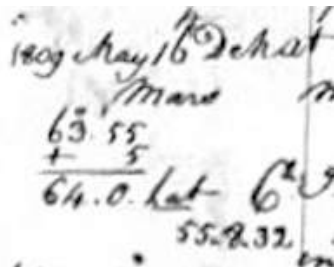 1809 May 16 De
Mars
63.55
+ 5
64.0. Lat 6h
55.8.32